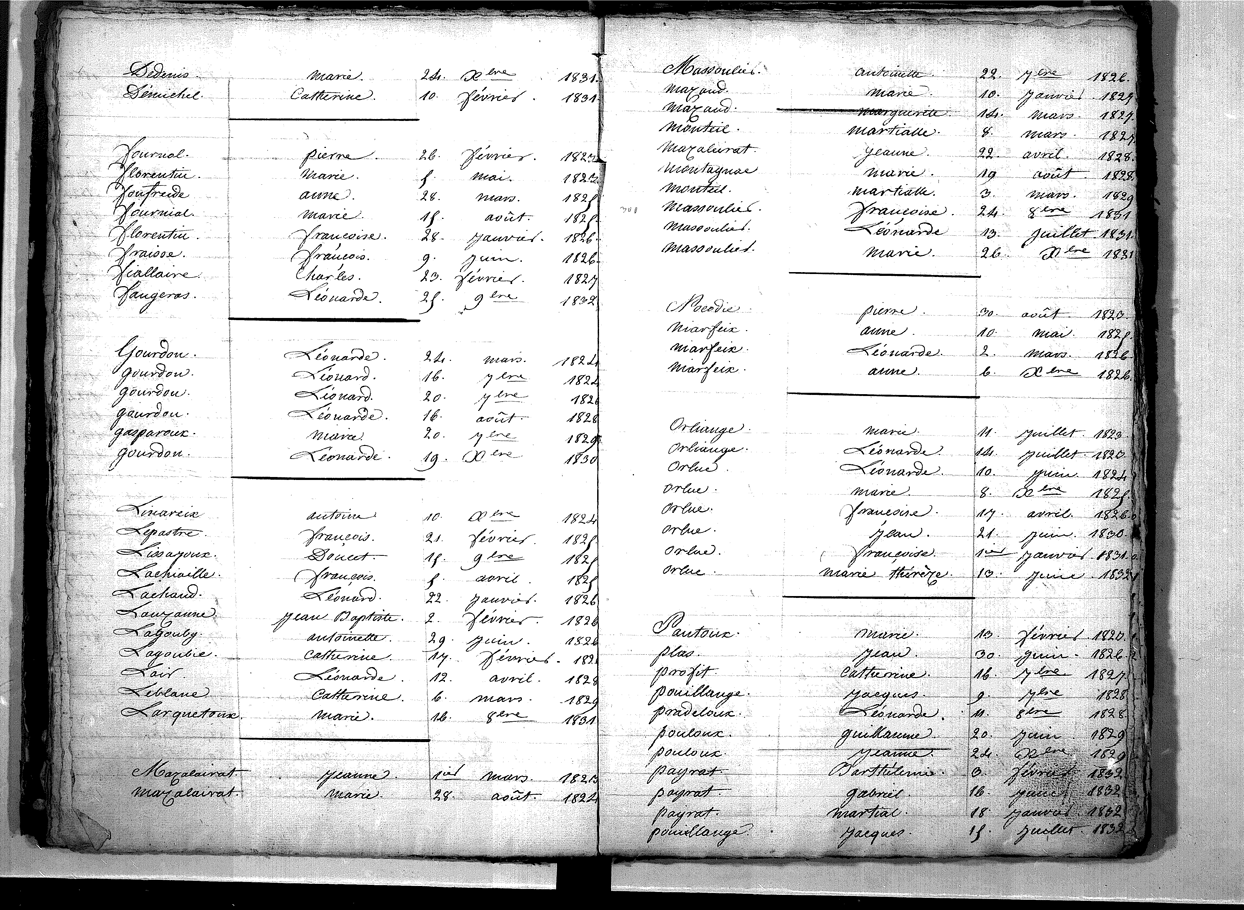 Dedenis. marie. 24. Xbre 1831.
Démichel. Catherine. 10. février. 1831
Journal. pierre. 26. février. 1823
florentin. marie. 5. mai. 1823
foufreide anne 28. mars. 1825
fournial. marie 15. août. 1825
florentin. francoise. 28. janvier. 1826
fraisse. françois. 9. juin. 1826
fiallaire. Charles. 23. février. 1827
faugeras. Léonarde. 25. 9bre 1832
Gourdon. Léonarde. 24. mars. 1824
gourdon. Léonard. 16. 7bre 1824
gourdon. Léonard. 20. 7bre 1826
gourdon. Léonarde. 16. août. 1828
gasparoux. marie 20. 7bre 1829
gourdon. Léonarde. 19. Xbre 1830
Linareix antoine 10. Xbre 1824
Lepastre. françois. 21. février. 1825
Lissajoux. Doucet. 15. 9bre 1825
Lachiaille. françois. 5. avril. 1825
Lachaud. Léonard. 22. janvier. 1826
Lauzanne. jean Baptiste. 2. février. 1826
Lagouby. antoinette. 29. juin. 1826
Lagoubie. Catherine. 17. février.
Lair. Léonarde. 12. avril. 1828
Leblanc Catherine. 6. mars. 1829
Larquetoux. marie. 16. 8bre 1831
Mazalairat. jeanne. 1er mars. 1823
mazalairat. marie. 28. août. 1824
Massoulier. antoinette. 22. 7bre 1826.
mazaud. marie. 10. janvier 1827
mazaud. marguerite 14. mars. 1827.
monteil. martialle. 8. mars. 1827
mazaleirat. jeanne. 22. avril. 1828.
montagnac marie. 19 août. 1828.
monteil. martialle. 3. mars. 1829
301 massoulier. françoise. 24. 8bre 1831
massoulier. Léonarde 13. juillet. 1831.
massoulier. marie. 26. Xbre 1831
Nocodie pierre. 30. août. 1823.
narfeix. anne. 10. mai. 1825
narfeix. Léonarde. 2. mars. 1826
narfeix. anne 6. Xbre 1826.
Orliange. marie. 11. juillet. 1823
orliange. Léonarde. 14. juillet. 1823.
orluc. Léonarde. 10. juin. 1824
orluc. marie. 8. Xbre 1825
orluc. francoise. 17. avril. 1826
orluc. jean. 21. juin. 1830.
orluc. françoise. 1er janvier 1831
orluc. marie thérèze. 13. juin. 1832
Pantoux. marie. 13. février 1823.
plas. jean. 30. juin. 1826
profit. Catherine. 16. 7bre 1827
pouillange. jacques. 9. 7bre 1828
pradeloux. Léonarde. 11. 8bre 1828
pouloux. guillaume. 20. juin. 1829
pouloux. jeanne. 24. Xbre 1829
payrat. Barthelemi. 3. février 1832
payrat. gabriel. 16. 1832
payrat. martial. 18 janvier 1832
pouillange. jacques. 15. juillet. 1832